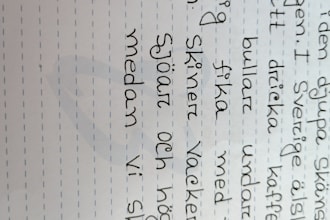 i den djupa skan
gen. I Sverige äls
tt dricka kaffe
bullar undar
ig fika med
skiner vacker
Sjöar och hög
medan vi s